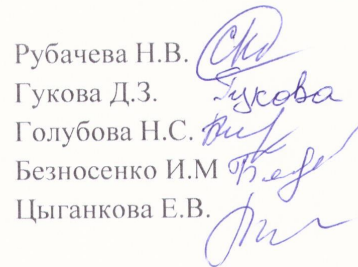 Рубачева Н.В.
Гукова Д.З. Гукова
Голубова Н.С.
Безносенко И.М
Цыганкова Е.В.